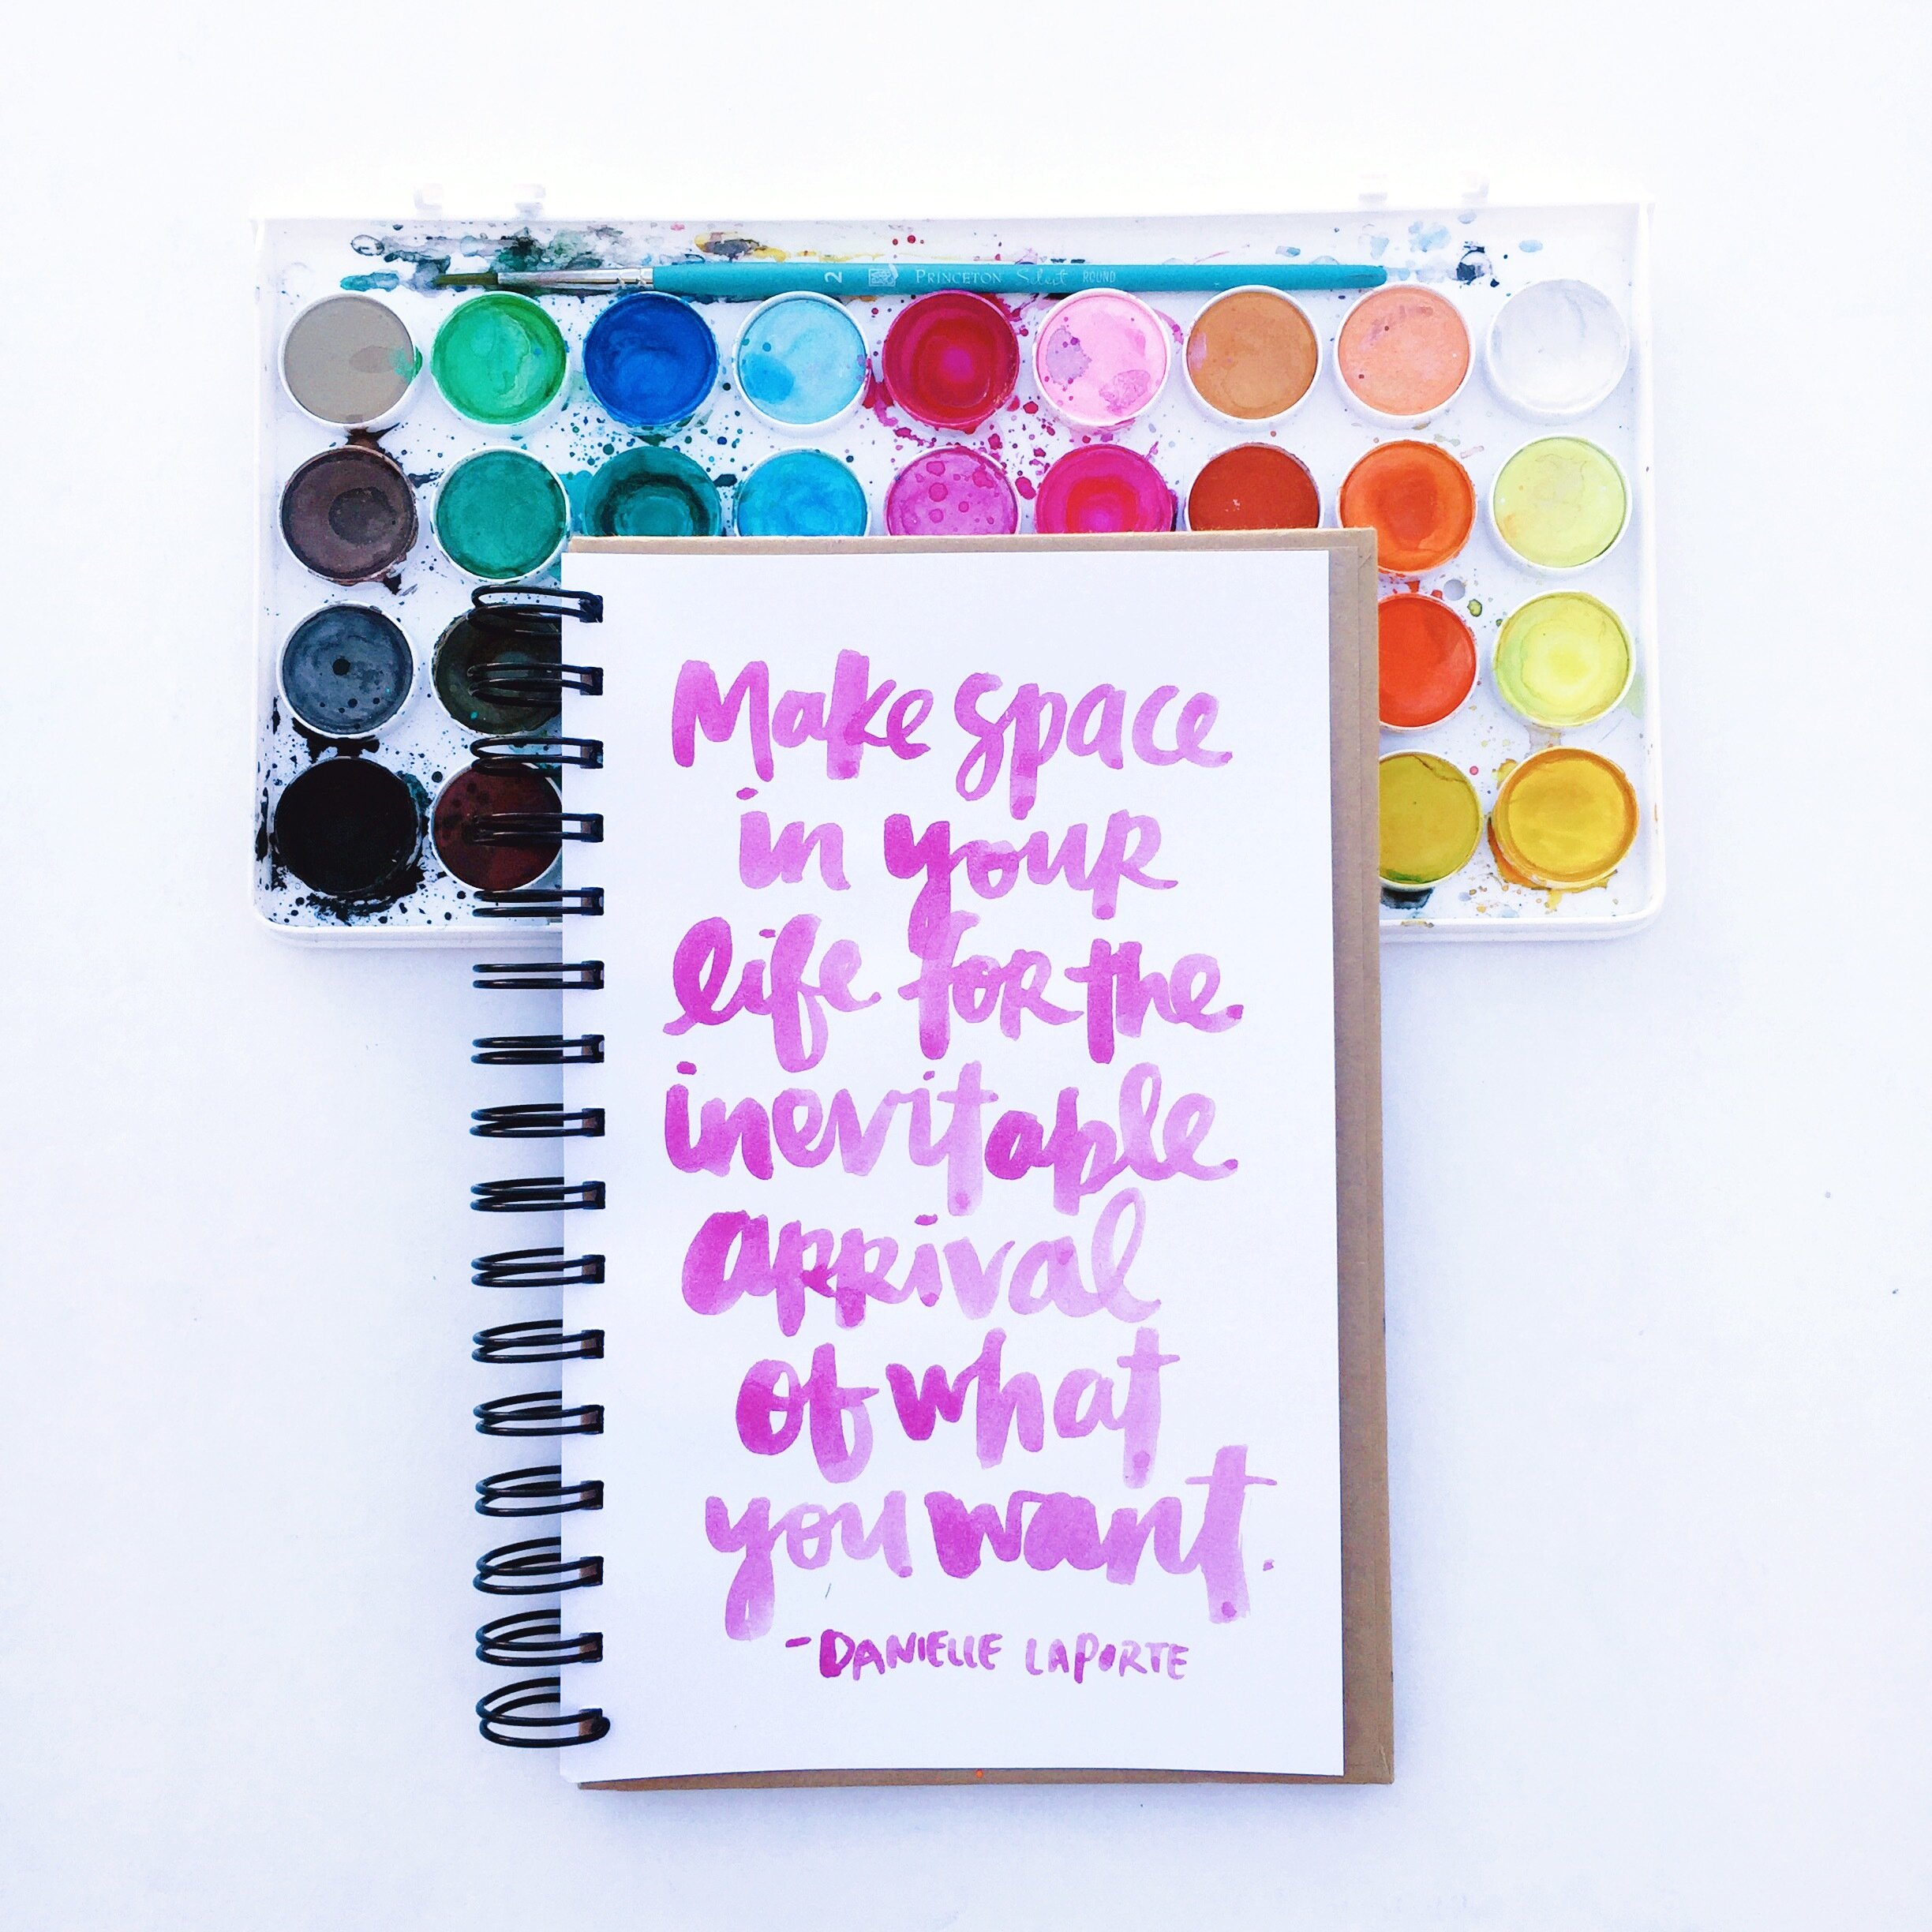 2 PRINCETON Select ROUND
Make space
in your
life for the
inevitable
arrival
of what
you want.
-DANIELLE LAPORTE